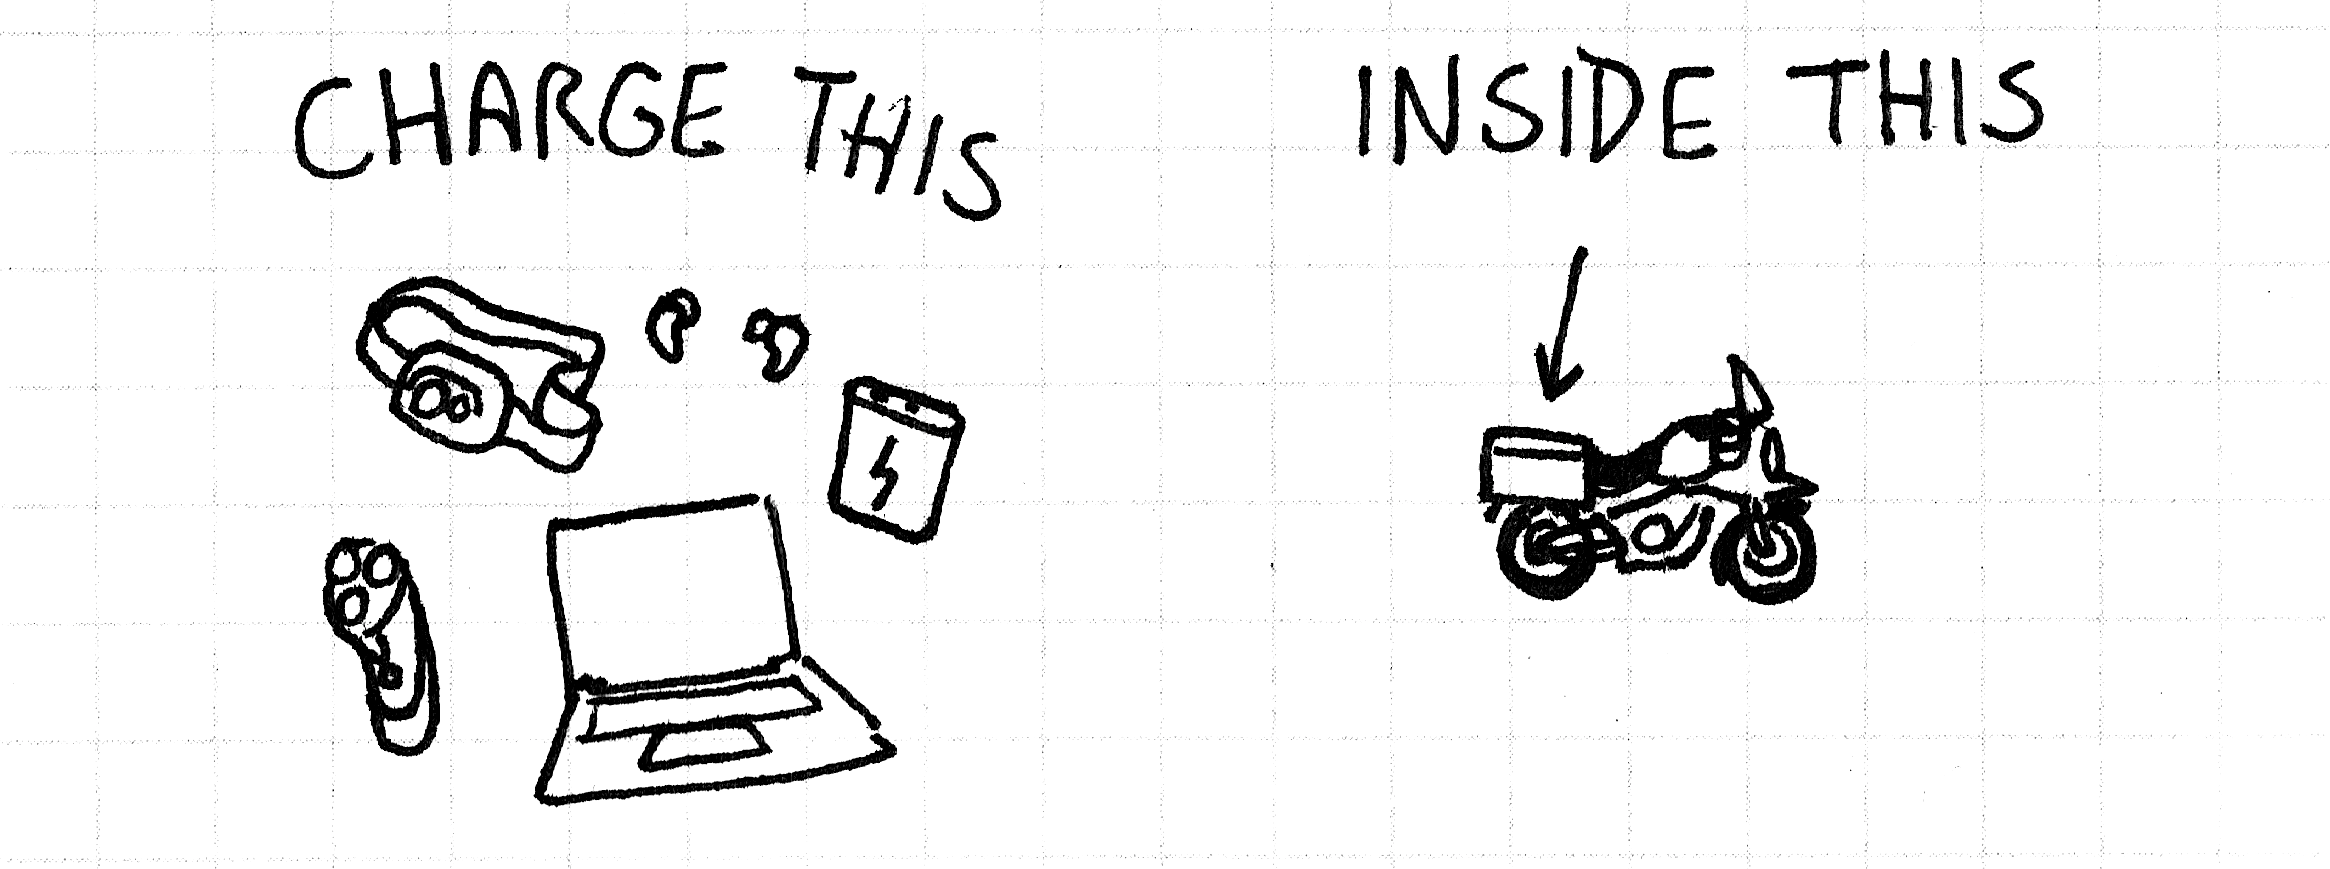 CHARGE THIS
INSIDE THIS